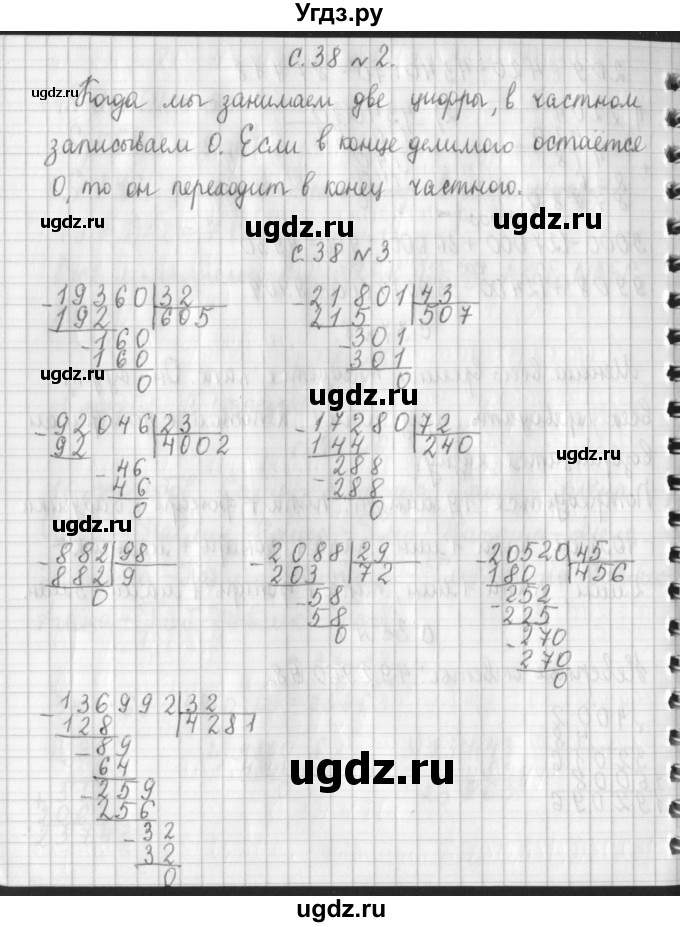 Угдз.ру
с. 38 № 2.
Когда мы занимаем две цифры, в частном
записываем 0. Если в конце делимого остаётся
0, то он переходит в конец частного.
ugdz.ru
ugdz.ru
ugdz.ru
ugdz.ru
с. 38 № 3
-19360|32
192 |605
-160
160
0
-21801|43
215 |507
-301
301
0
ugdz.ru
ugdz.ru
-92046|23
92 |4002
-46
46
0
-17280|72
144 |240
-288
288
0
ugdz.ru
ugdz.ru
-882|98
882|9
0
-2088|29
203 |72
-58
58
0
-20520|45
180 |456
-252
225
-270
270
0
-136992|32
128 |4281
-89
64
-259
256
-32
32
0
ugdz.ru
ugdz.ru
ugdz.ru